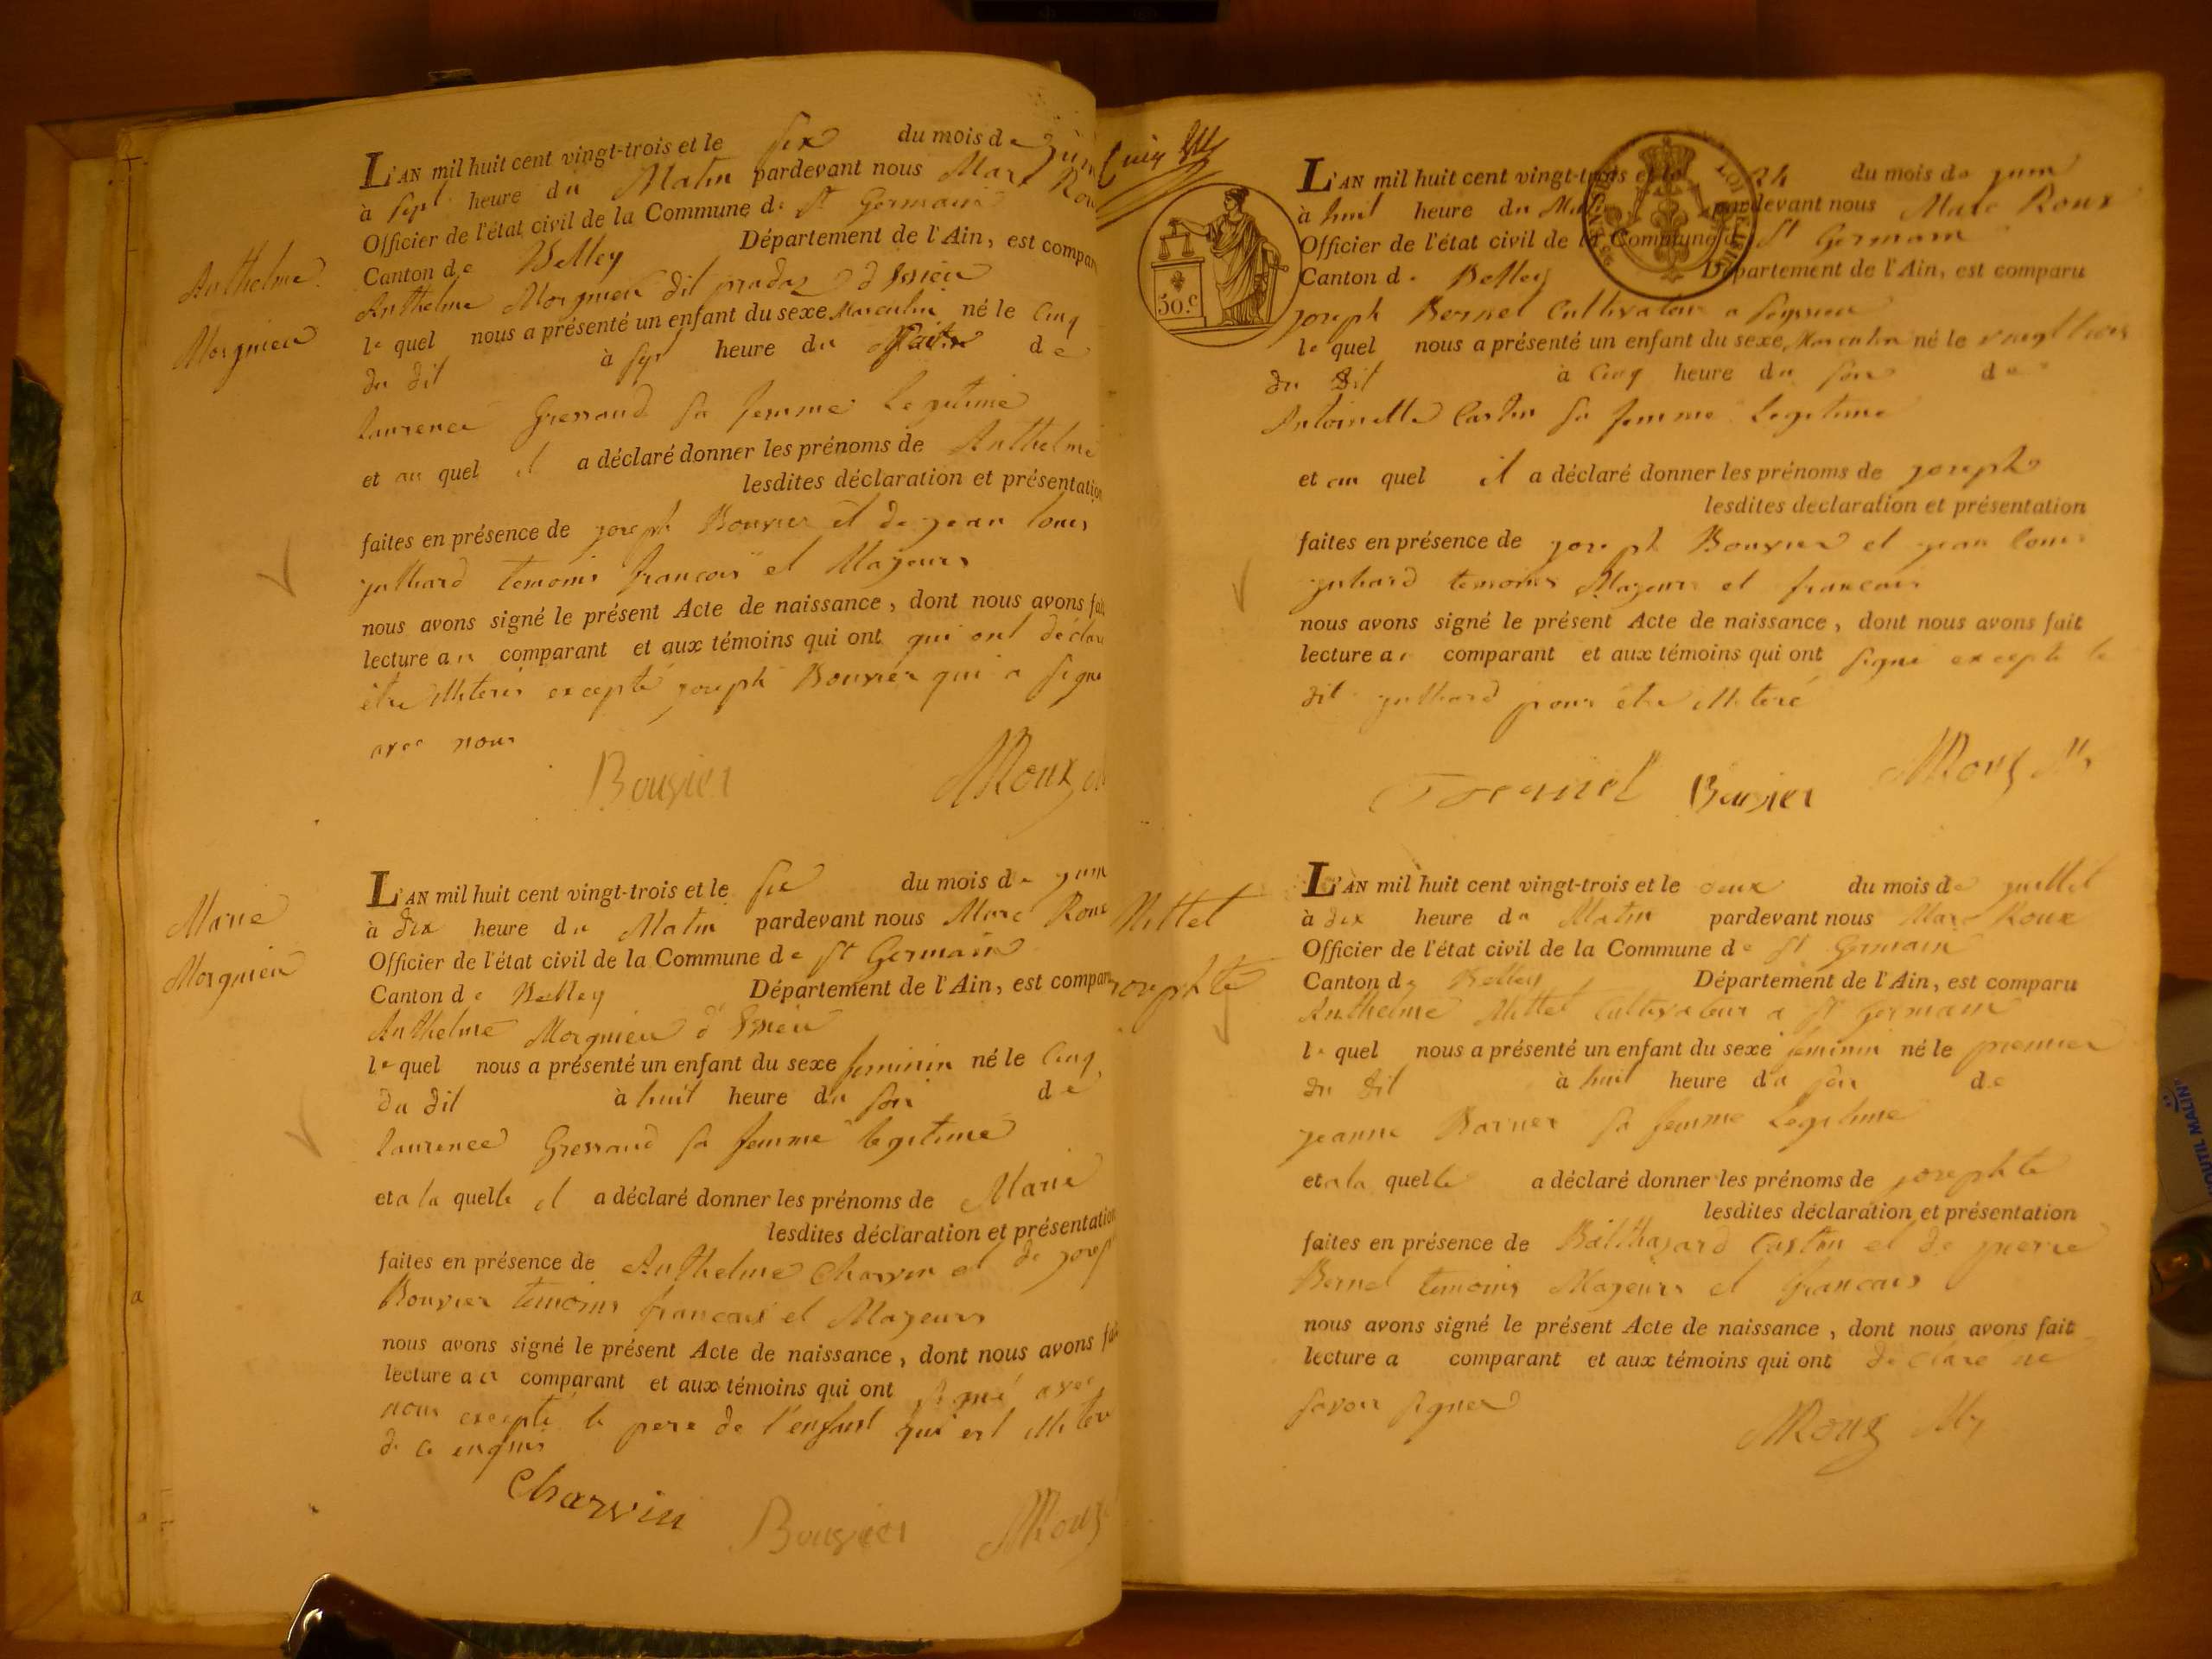 L'AN mil huit cent vingt-trois et le six du mois de juin
à sept heure du Matin pardevant nous Marc Rou
Officier de l'état civil de la Commune de St Germain
Canton de Belley Département de l'Ain, est compar
Anthelme Morgnieu dit d'
le quel nous a présenté un enfant du sexe Masculin né le Cinq
du dit à sept heure du de
laurence Gressaud sa femme Legitime
et au quel il a déclaré donner les prénoms de Anthelme
lesdites déclaration et présentation
faites en présence de joseph Bouvier et de jean louis
julliard temoins francois et Majeurs
nous avons signé le présent Acte de naissance, dont nous avons fait
lecture au comparant et aux témoins qui ont qui ont déclare
être illiterés excepté joseph Bouvier qui a signé
avec nous
Bouvier MRoux
Anthelme
Morgnieu
L'AN mil huit cent vingt-trois et le six du mois de juin
à dix heure du Matin pardevant nous Marc Roux
Officier de l'état civil de la Commune de St Germain
Canton de Belley Département de l'Ain, est compar
Anthelme Morgnieu d'
le quel nous a présenté un enfant du sexe feminin né le Cinq
du dit à huit heure du soir de
laurence Gressaud sa femme legitime
et a la quelle il a déclaré donner les prénoms de Marie
lesdites déclaration et présentation
faites en présence de Anthelme Charvin et de josep
Bouvier temoins francois et Majeurs
nous avons signé le présent Acte de naissance, dont nous avons fai
lecture au comparant et aux témoins qui ont signé avec
nous excepté le pere de l'enfant qui est illiteré
de ce enquis
Charvin Bouvier MRoux
Marie
Morgnieu
50.C
L'AN mil huit cent vingt-trois et le 24 du mois de juin
à huit heure du Matin pardevant nous Marc Roux
Officier de l'état civil de la Commune de St Germain
Canton de Belley Département de l'Ain, est comparu
joseph Bernel Cultivateur a
le quel nous a présenté un enfant du sexe Masculin né le vingt trois
du dit à Cinq heure du soir de
Antoinette Castin sa femme Legitime
et au quel il a déclaré donner les prénoms de joseph
lesdites declaration et présentation
faites en présence de joseph Bouvier et jean louis
juliard temoins Majeurs et francais
nous avons signé le présent Acte de naissance, dont nous avons fait
lecture au comparant et aux témoins qui ont signé excepté le
dit julliard pour être illiteré
Bouvier MRoux
L'AN mil huit cent vingt-trois et le deux du mois de juillet
à dix heure du Matin pardevant nous Marc Roux
Officier de l'état civil de la Commune de St Germain
Canton de Belley Département de l'Ain, est comparu
Anthelme Mittet Cultivateur a St Germain
le quel nous a présenté un enfant du sexe feminin né le premier
du dit à huit heure du soir de
jeanne Barner sa femme Legitime
et a la quelle a déclaré donner les prénoms de josephte
lesdites déclaration et présentation
faites en présence de Balthazard Castin et de pierre
Bernel temoins Majeurs et francais
nous avons signé le présent Acte de naissance, dont nous avons fait
lecture a comparant et aux témoins qui ont declaré ne
savoir signer
MRoux
Mittet
josephte
OUTIL MALIN